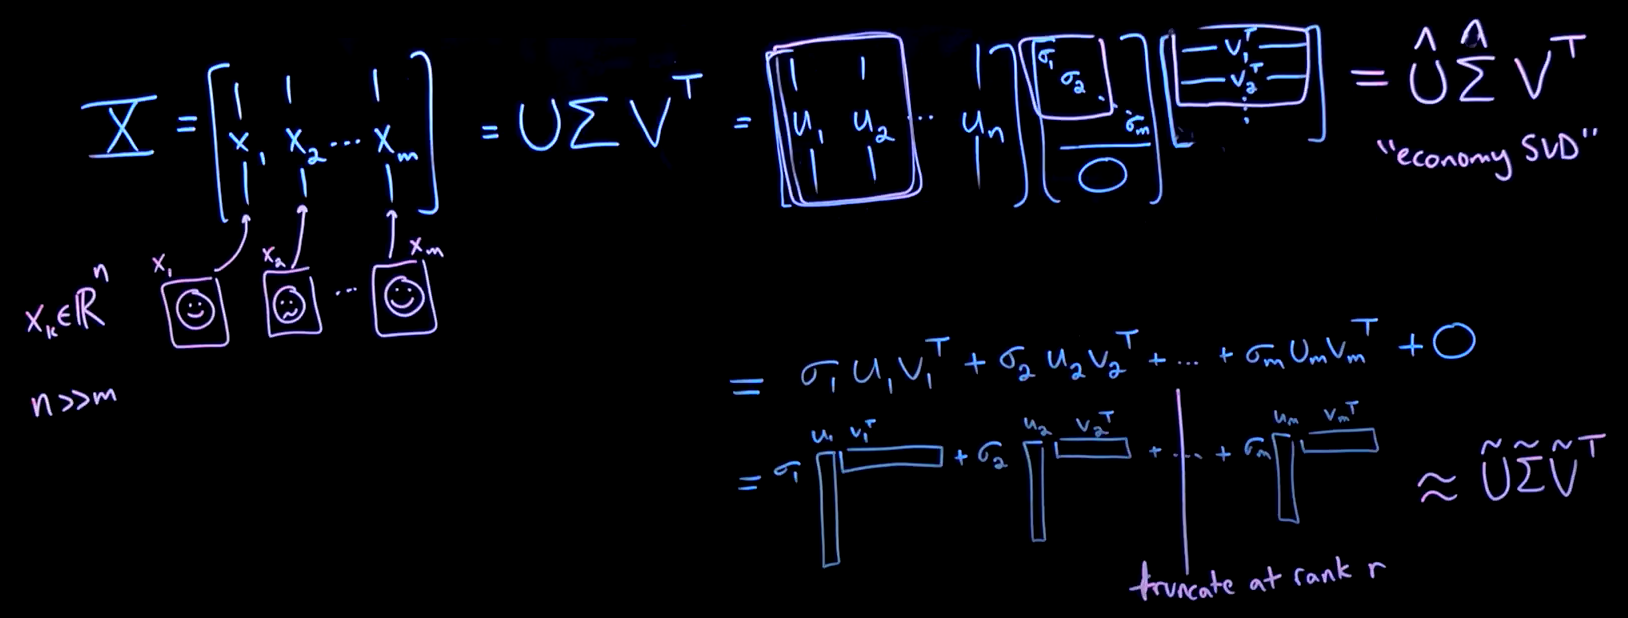 X = [x₁ x₂ ... xₘ] = UΣVᵀ = [u₁ u₂ ... uₙ] [σ₁ σ₂ ⋱ σₘ 0] [v₁ᵀ v₂ᵀ ⋮] = ÛΣ̂Vᵀ
"economy SVD"
x₁ x₂ ... xₘ
xₖ∈ℝⁿ
n>>m
= σ₁u₁v₁ᵀ + σ₂u₂v₂ᵀ + ... + σₘuₘvₘᵀ + 0
u₁ v₁ᵀ u₂ v₂ᵀ uₘ vₘᵀ
= σ₁ + σ₂ + ... + σₘ ≈ ŨΣ̃Ṽᵀ
truncate at rank r